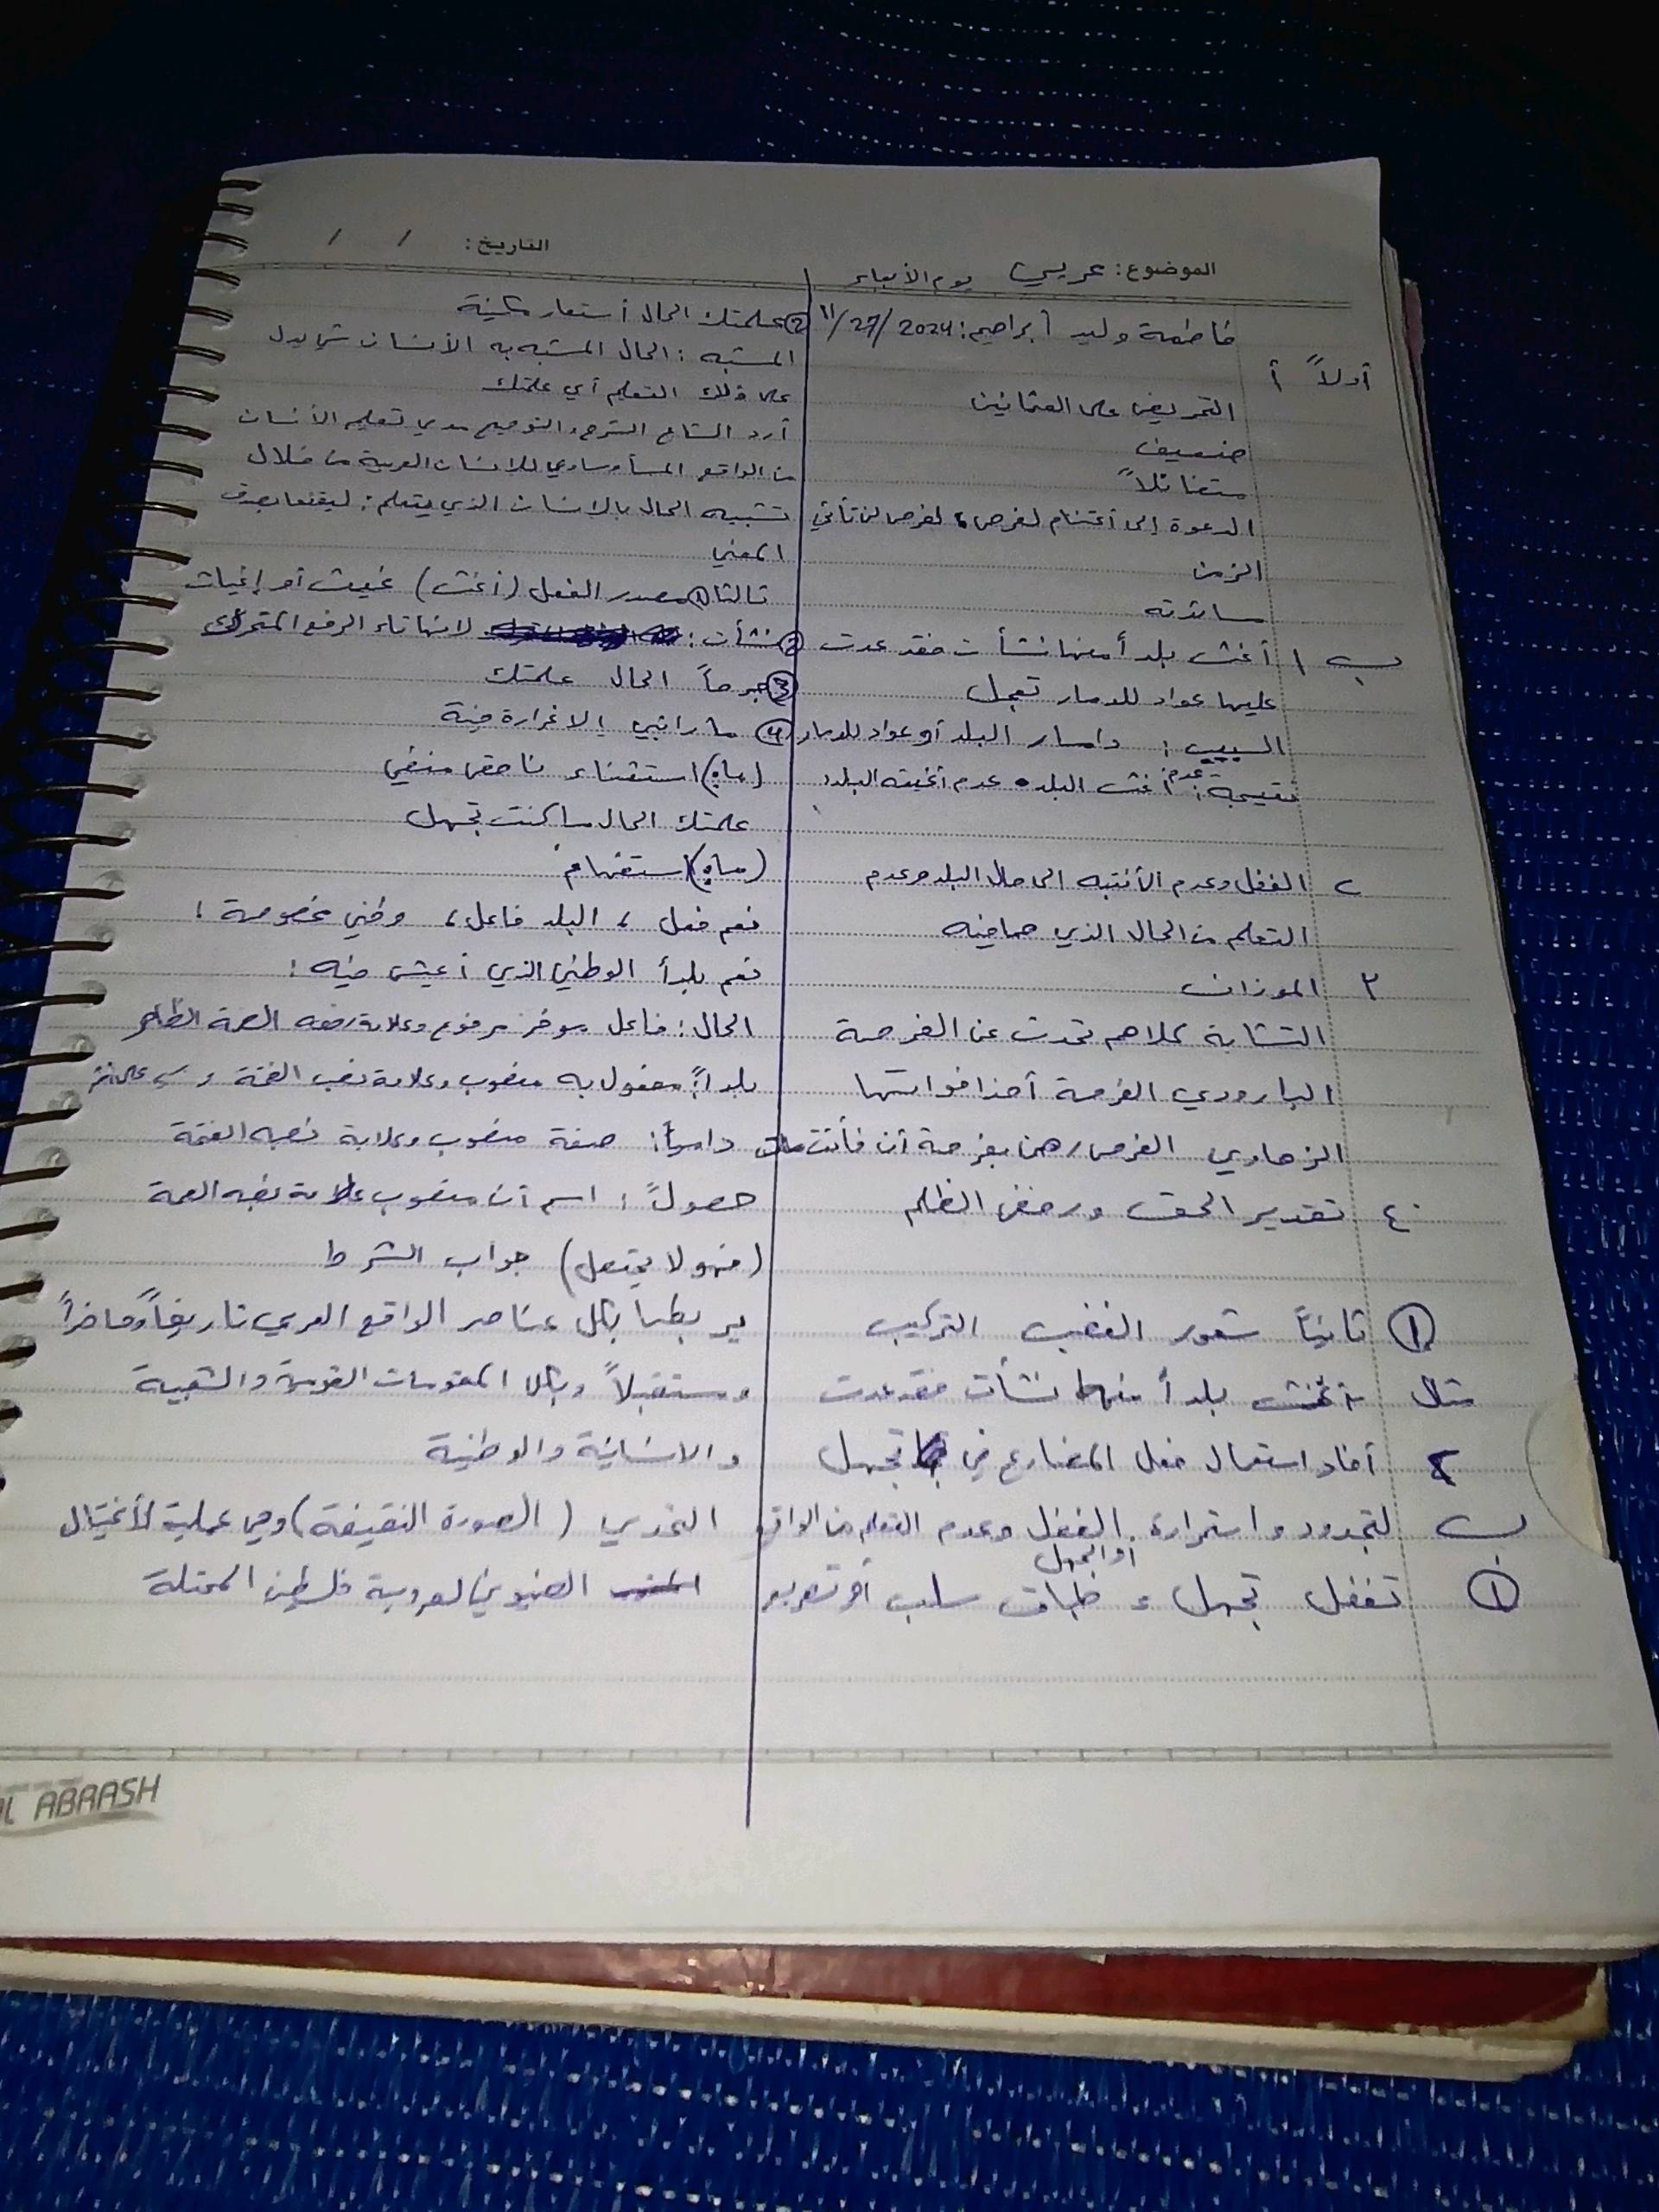 الموضوع: عربي يوم الأربعاء
التاريخ: / /
فاطمة وليد ابراهيم: 2024 /27/ ١١
أولاً أ
التحريض على العثمانين
ضعيف
متفائلاً
الدعوة إلى أغتنام لفرص، لفرص لن تأتي
الزمن
ساندته
ب ١ أغث بلداً منها نشأت فقد عدت
عليها عواد للدمار تعجل
السبب: دامار البلد أو عواد للدمار
نتيجة: عدم أغث البلد عدم أغيته البلد
٢ الغفل وعدم الأنتبه الى حال البلد وعدم
التعلم من الحال الذي هما فيه
٣ الموزانت
التشابة كلاهم تحدث عن الفرصة
البارودي الفرصة أحذا فواتها
الزهاوي الفرص رهن بفرصة أن فأنت مات
٤ تقدير الحق ورفض الظلم
① ثانياً شعور الغضب التركيب
مثال أغث بلداً منها نشأت فقد عدت
٢ أفاد استعمال فعل المضارع في تجهل
لتجدود واستمرارة الغفل وعدم التعلم من الواقع
أو الجهل
ب ① تغفل تجهل طباق سلب
② علمتك الحال أستعار مكنية
المشبه: الحال المشبه به الأنسان شي يدل
على ذلك التعلم أي علمتك
أرد الشاعر الشرح والتوضيح مدي تعليم الأنسان
من الواقع المسأوساوي للانسان العربية من خلال
تشبيه الحال بالانسان الذي يتعلم: ليقنعنا بصدق
المعنى
ثالثا ① مصدر الفعل (أغث) غيث أو إغياث
② نشأت: لانها تاء الرفع المتحرك
③ الحال علمتك
④
استثناء ناحقى منفي
علمتك الحال ما كنت تجهل
استفهام
نعم فعل، البلد فاعل، وطني مخصوصة؛
نعم بلداً الوطني الذي أعيش فيه:
الحال: فاعل موخر مرفوع وعلامة رفعه الضمة الظاهر
بلداً: مفعول به منصوب وعلامة نصب الفتحة
صفة منصوب وعلامة نصبه الفتحة
اسم أن منصوب علامة نصبه
(فهو لا يحتمل) جواب الشرط
يربطها بكل عناصر الواقع العربي تاريخاً وحاضراً
ومستقبلاً وبكل المقومات القومية والشعبية
والانسانية والوطنية
التحدي (الصورة النقيضة) وهي عملية الأغتيال
لعروبة فلسطين المحتلة
ABRASH